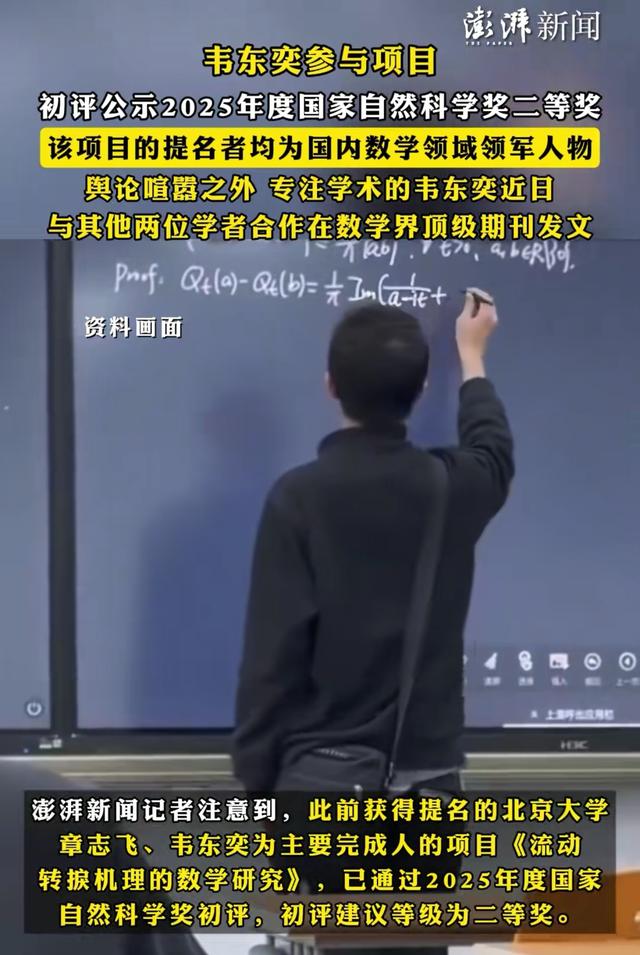 澎湃新闻
THE PAPER
韦东奕参与项目
初评公示2025年度国家自然科学奖二等奖
该项目的提名者均为国内数学领域领军人物
舆论喧嚣之外 专注学术的韦东奕近日
与其他两位学者合作在数学界顶级期刊发文
Proof. Qt(a)-Qt(b)=1/π Im(1/(a-it)+
资料画面
上滑呼出应用栏
H3C
澎湃新闻记者注意到，此前获得提名的北京大学
章志飞、韦东奕为主要完成人的项目《流动
转捩机理的数学研究》，已通过2025年度国家
自然科学奖初评，初评建议等级为二等奖。